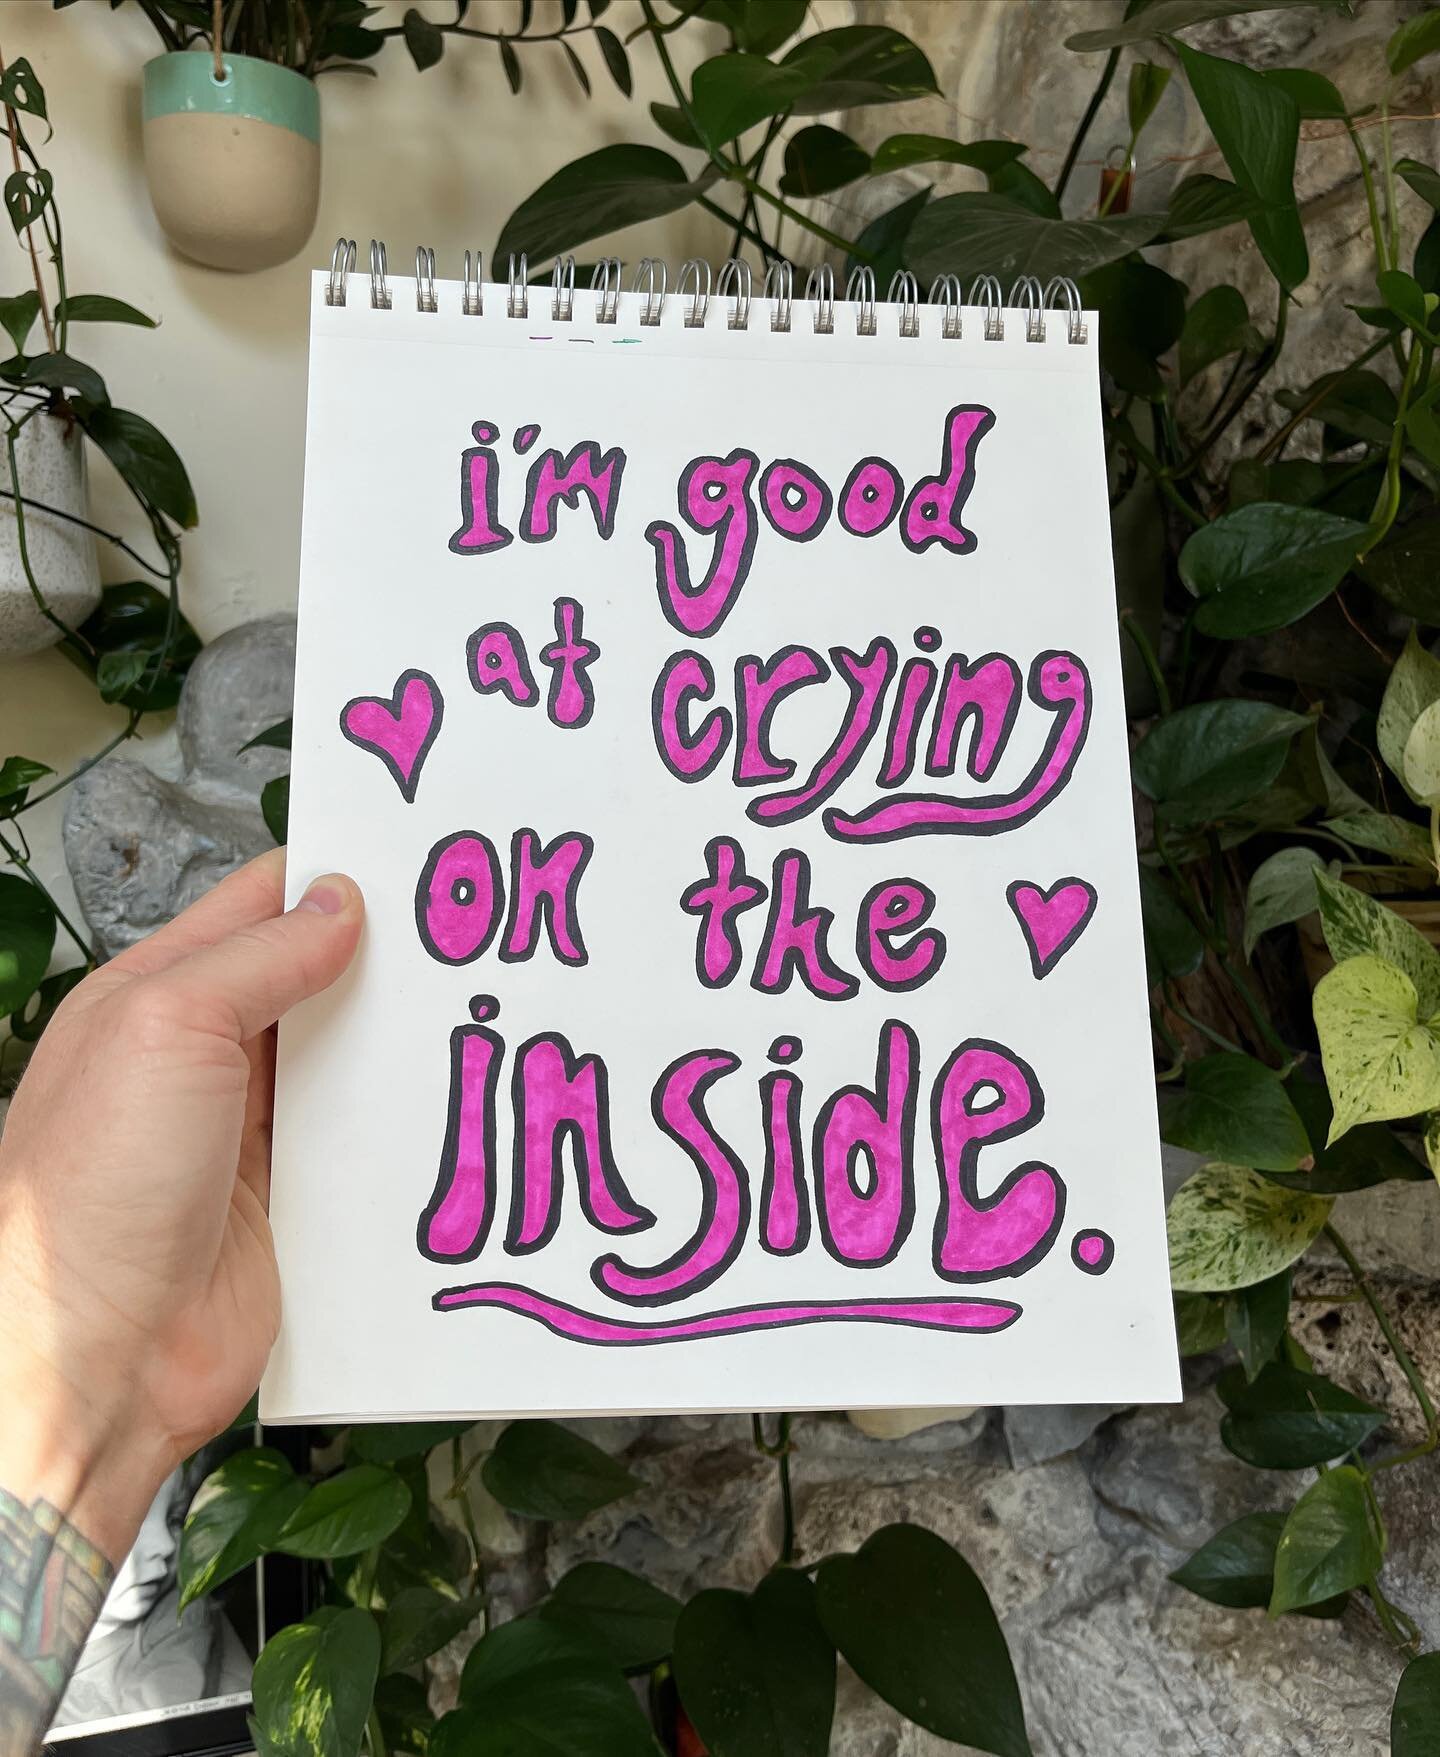 i'm good
at crying
on the
inside.